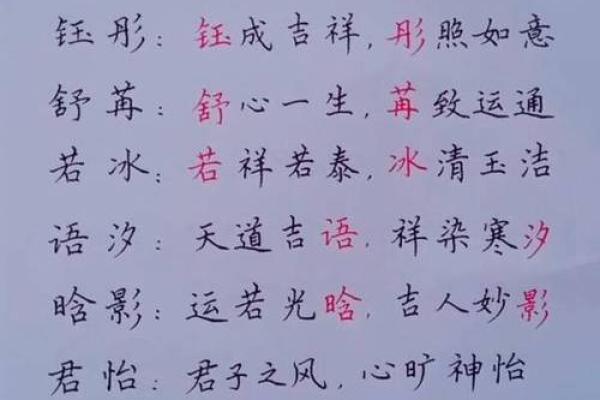 钰彤：钰成吉祥，彤照如意
舒苒：舒心一生，苒致运通
若冰：若祥若泰，冰清玉洁
语汐：天道吉语，祥染寒汐
晗影：运若光晗，吉人妙影
君怡：君子之风，心旷神怡